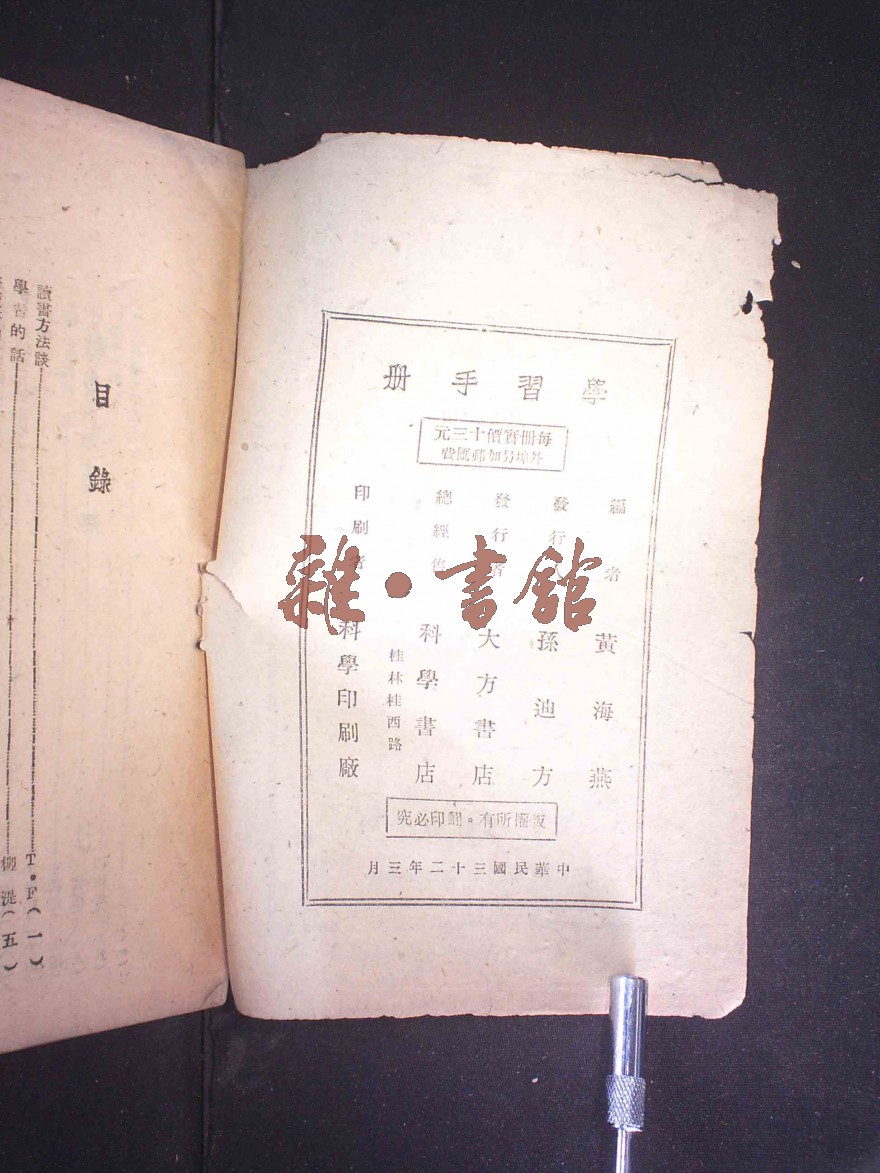 學習手册
每冊實價十三元
外埠另加郵匯費
編者 黃海燕
發行 孫迪方
發行 大方書店
總經售 科學書店
桂林桂西路
印刷者 科學印刷廠
版權所有。翻印必究
中華民國三十二年三月
雜·書館
目錄
讀書方法談 T·F(一)
學習的話 柳湜(五)